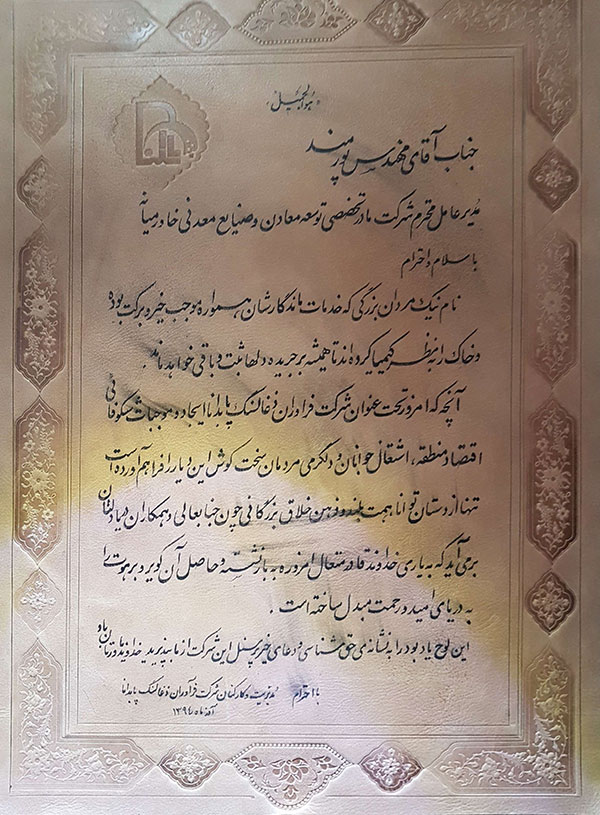 هوالجمیل
جناب آقای مهندس پورمند
مدیر عامل محترم شرکت مادر تخصصی توسعه معادن و صنایع معدنی خاورمیانه
با سلام و احترام
نام نیک مردان بزرگی که خدمات ماندگارشان همواره موجب خیر و برکت بوده
و خاک را به نظر کیمیا کرده اند تا همیشه بر جریده دلها ثبت و باقی خواهد ماند.
آنچه که امروز تحت عنوان شرکت فرآوران ذغالسنگ پابدانا ایجاد و موجبات شکوفائی
اقتصاد منطقه، اشتغال جوانان و دلگرمی مردمان سخت کوش این دیار را فراهم آورده است
تنها از دستان توانا همت بلند و ذهن خلاق بزرگانی چون جنابعالی و همکاران دریادلتان
برمی آید که به یاری خداوند قادر متعال امروزه به بار نشسته و حاصل آن کویر و برهوت را
به دریای امید و رحمت مبدل ساخته است.
این لوح یادبود را به نشانه ی حق شناسی و دعای خیر پرسنل این شرکت از ما بپذیرید خداوند یارتان باد
با احترام مدیریت و کارکنان شرکت فرآوران ذغالسنگ پابدانا
آذر ماه ۱۳۹۴